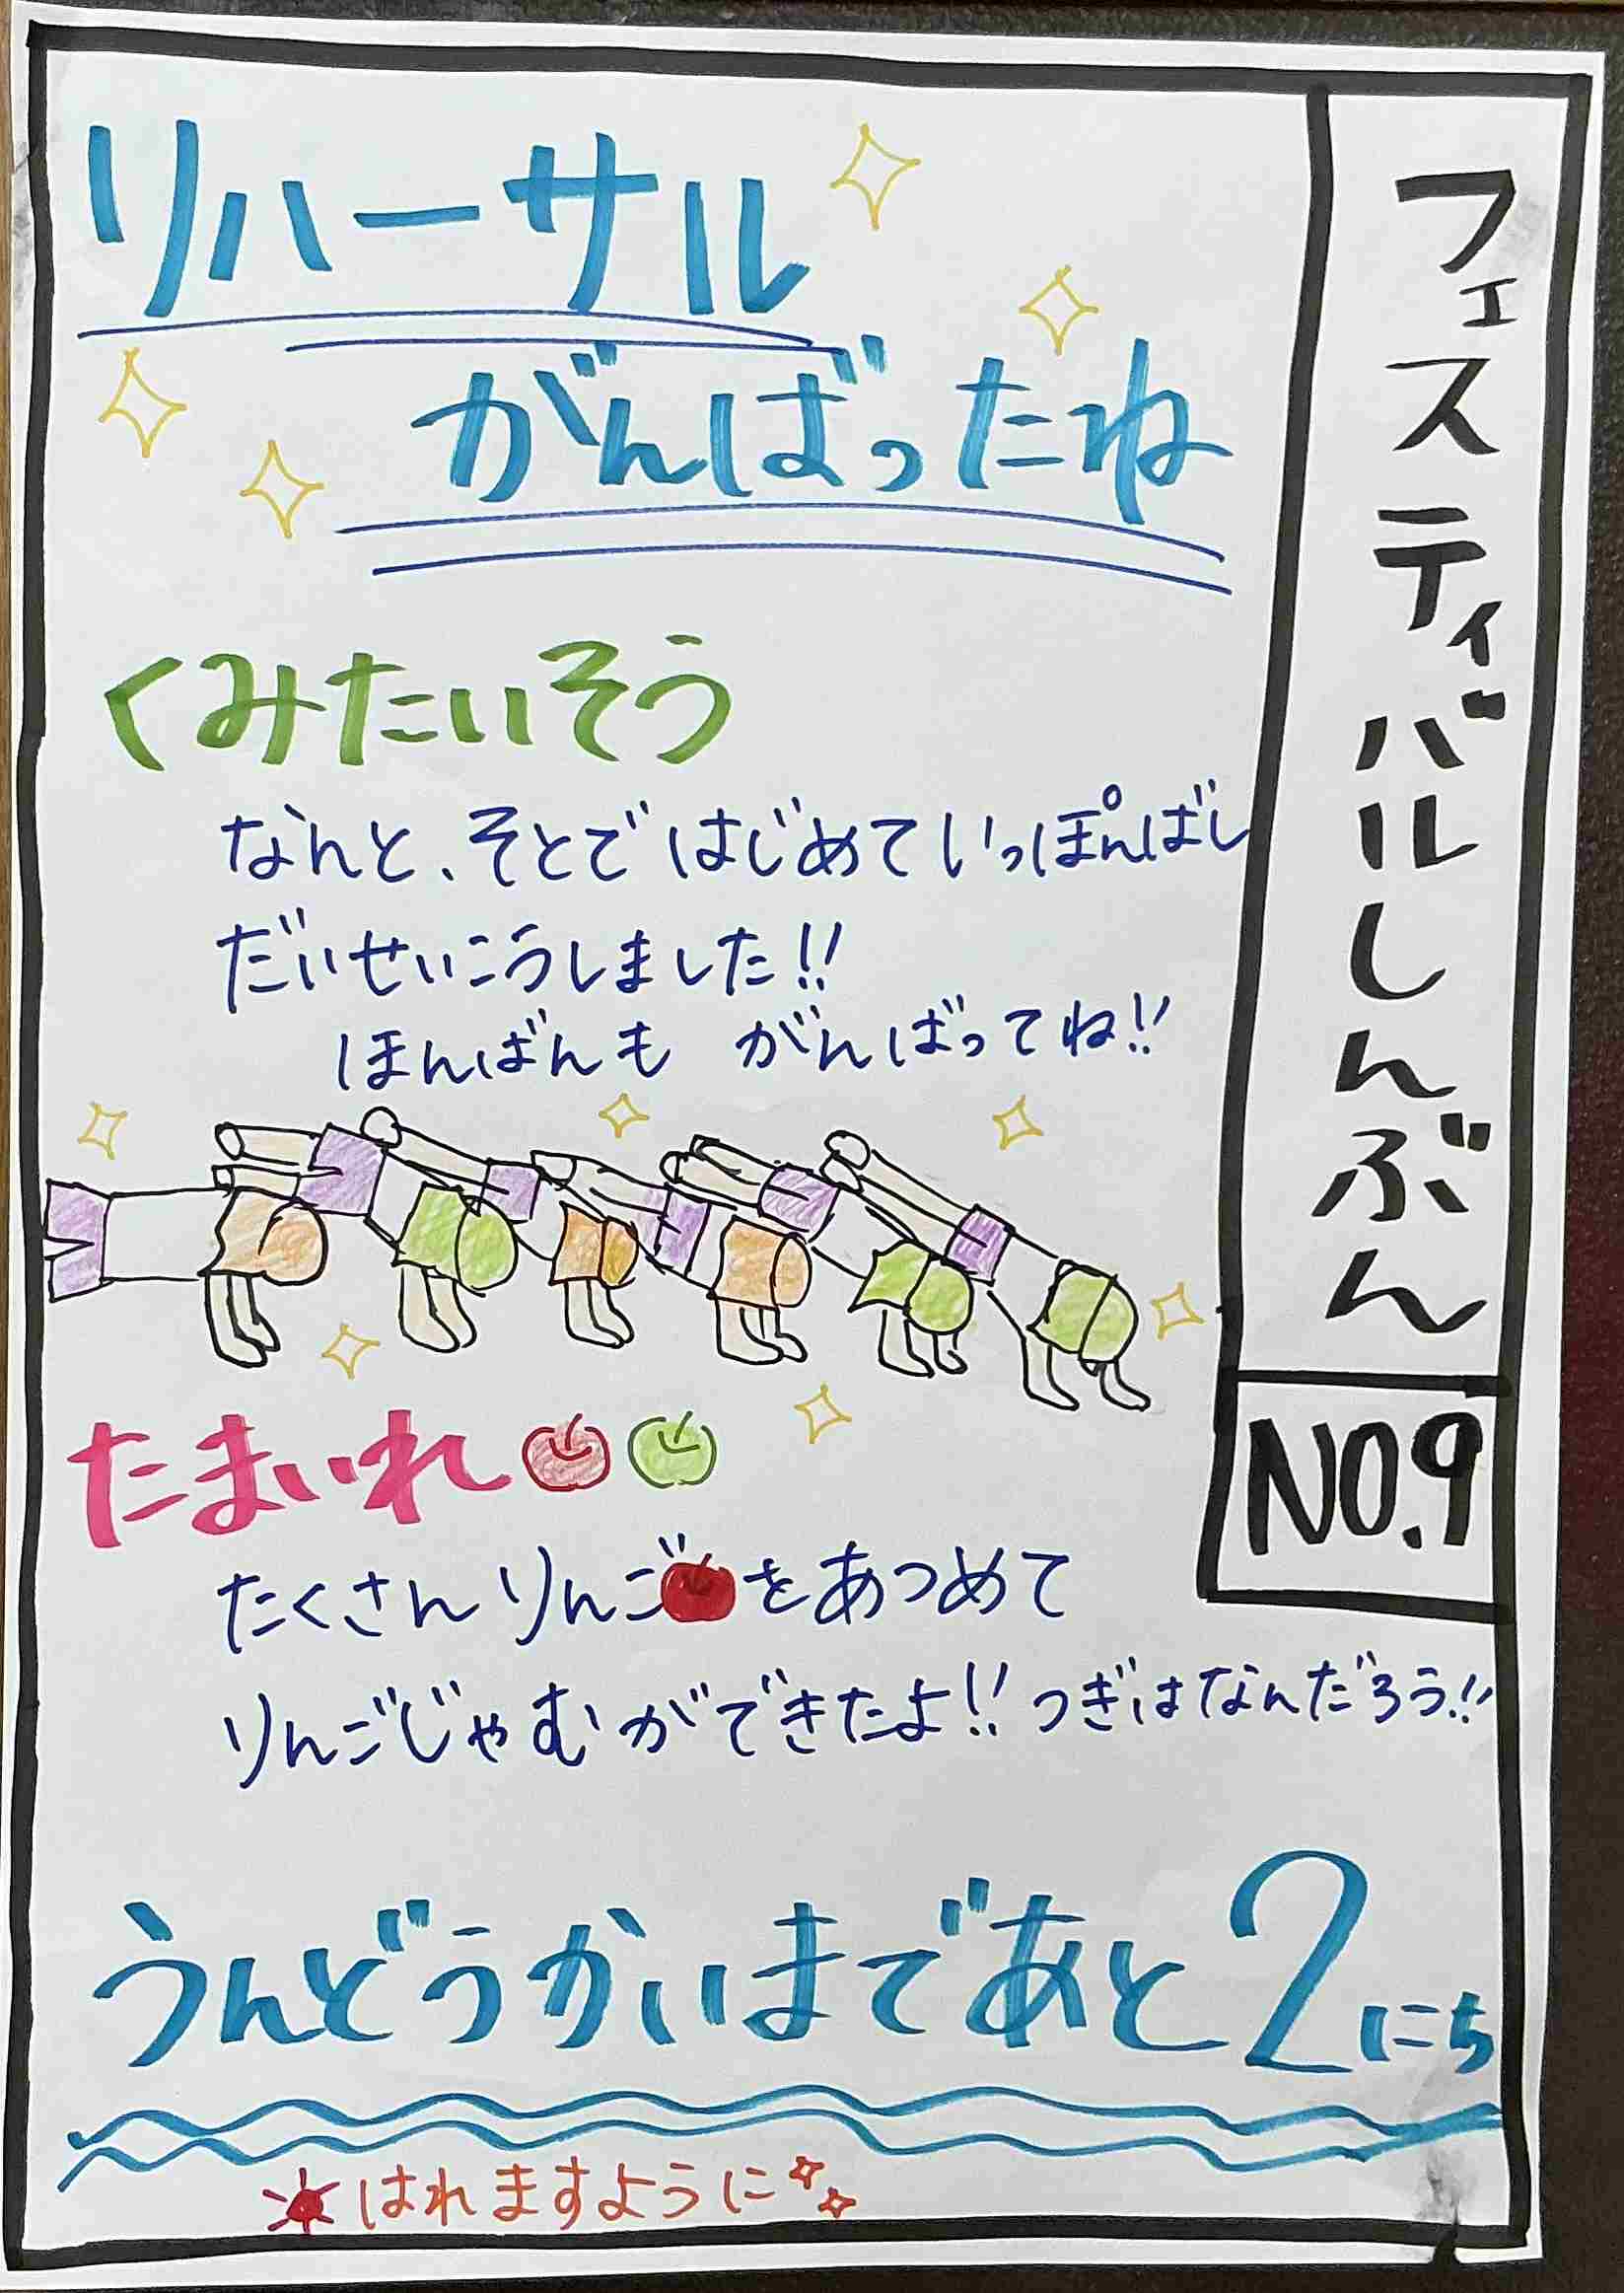 フェスティバルしんぶん
NO.9
リハーサル
がんばったね
くみたいそう
なんと、そとではじめていっぽんばし
だいせいこうしました!!
ほんばんも がんばってね!!
たまいれ
たくさんりんごをあつめて
りんごじゃむができたよ!! つぎはなんだろう!!
うんどうかいまであと2にち
はれますように